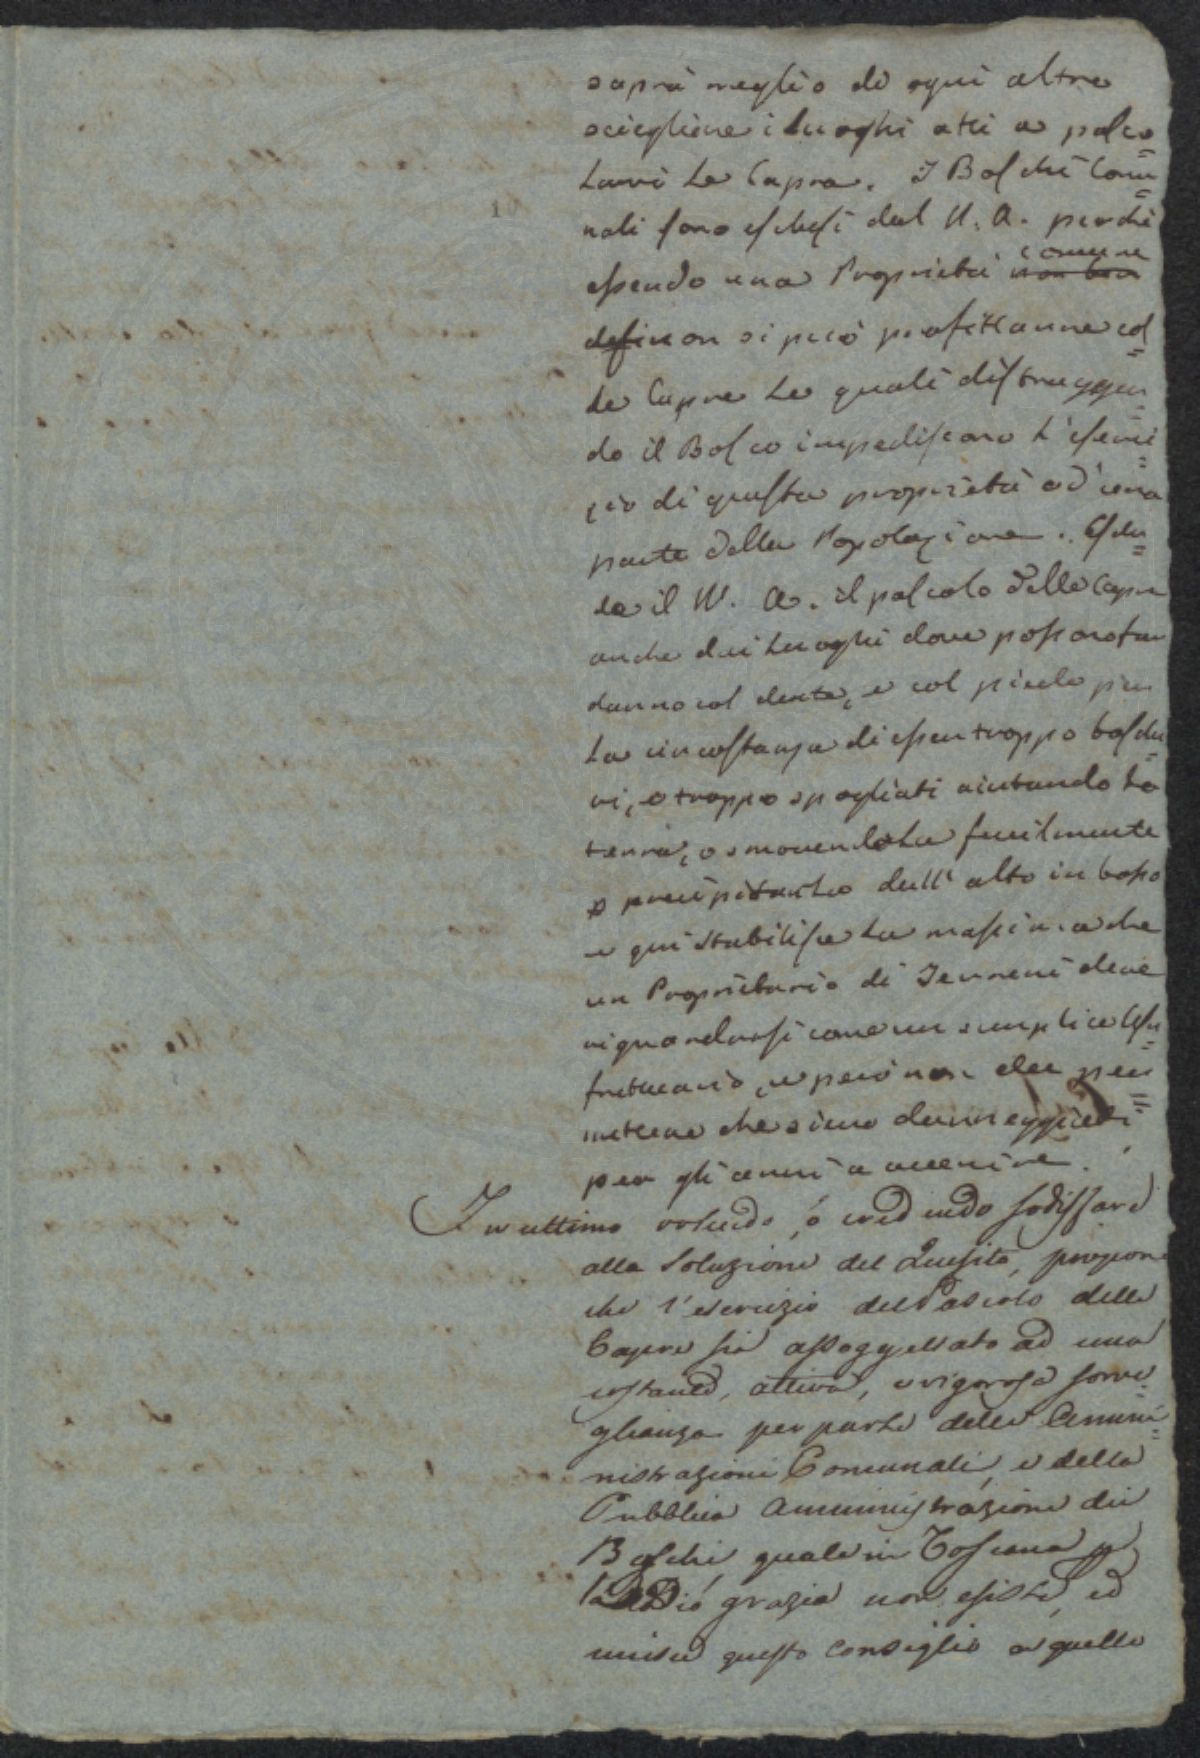 saprà meglio di ogni altro
sciegliere i luoghi atti a pasco=
larvi le Capre. I Boschi Comu=
nali sono esclusi dal N. A. perchè
essendo una Proprietà comune
non si può profittarne col=
le Capre le quali distruggen=
do il Bosco impediscono l'eserci=
zio di questa proprietà ad una
parte della Popolazione. Esclu=
de il N. A. il pascolo delle Capre
anche dai luoghi dove possono far
danno col dente, e col piede per
la circostanza di esser troppo boschi=
vi, o troppo spogliati aiutando la
terra, o smovendola facilmente
a precipitarla dall' alto in basso
e qui stabilisce la massima che
un Proprietario di Terreni deve
riguardarsi come un semplice Usu=
fruttuario, e però non dee per=
mettere che siano danneggiati
per gli anni a avvenire.
In ultimo volendo, o credendo sodisfare
alla soluzione del Quesito, propone
che l'esercizio del Pascolo delle
Capre sia assoggettato ad una
costante, attiva, e rigorosa sorve=
glianza per parte delle Ammi=
nistrazioni Comunali, e della
Pubblica Amministrazione dei
Boschi, quale in Toscana p
la Dio grazia non esiste, ed
unisce questo consiglio a quello